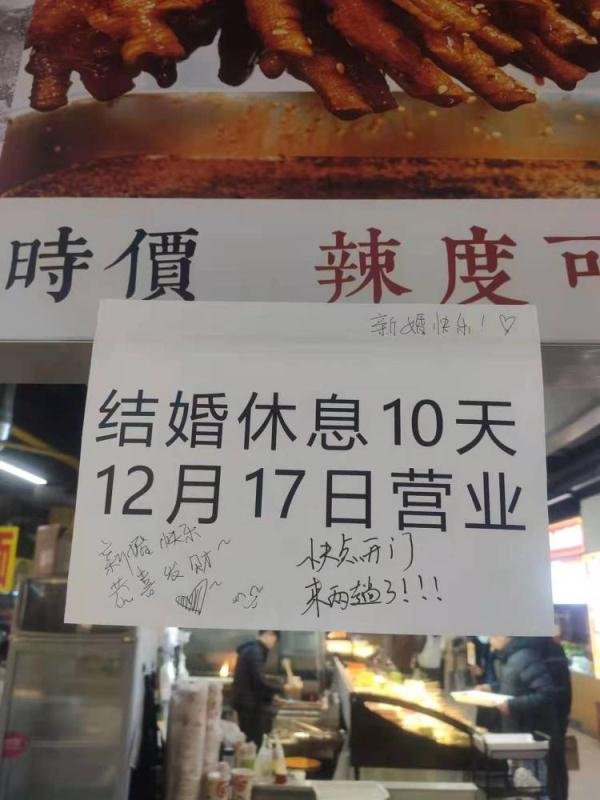 時價
辣度可
新婚快乐!♡
结婚休息10天
12月17日营业
新婚快乐
恭喜发财~
快点开门
来两趟了!!!